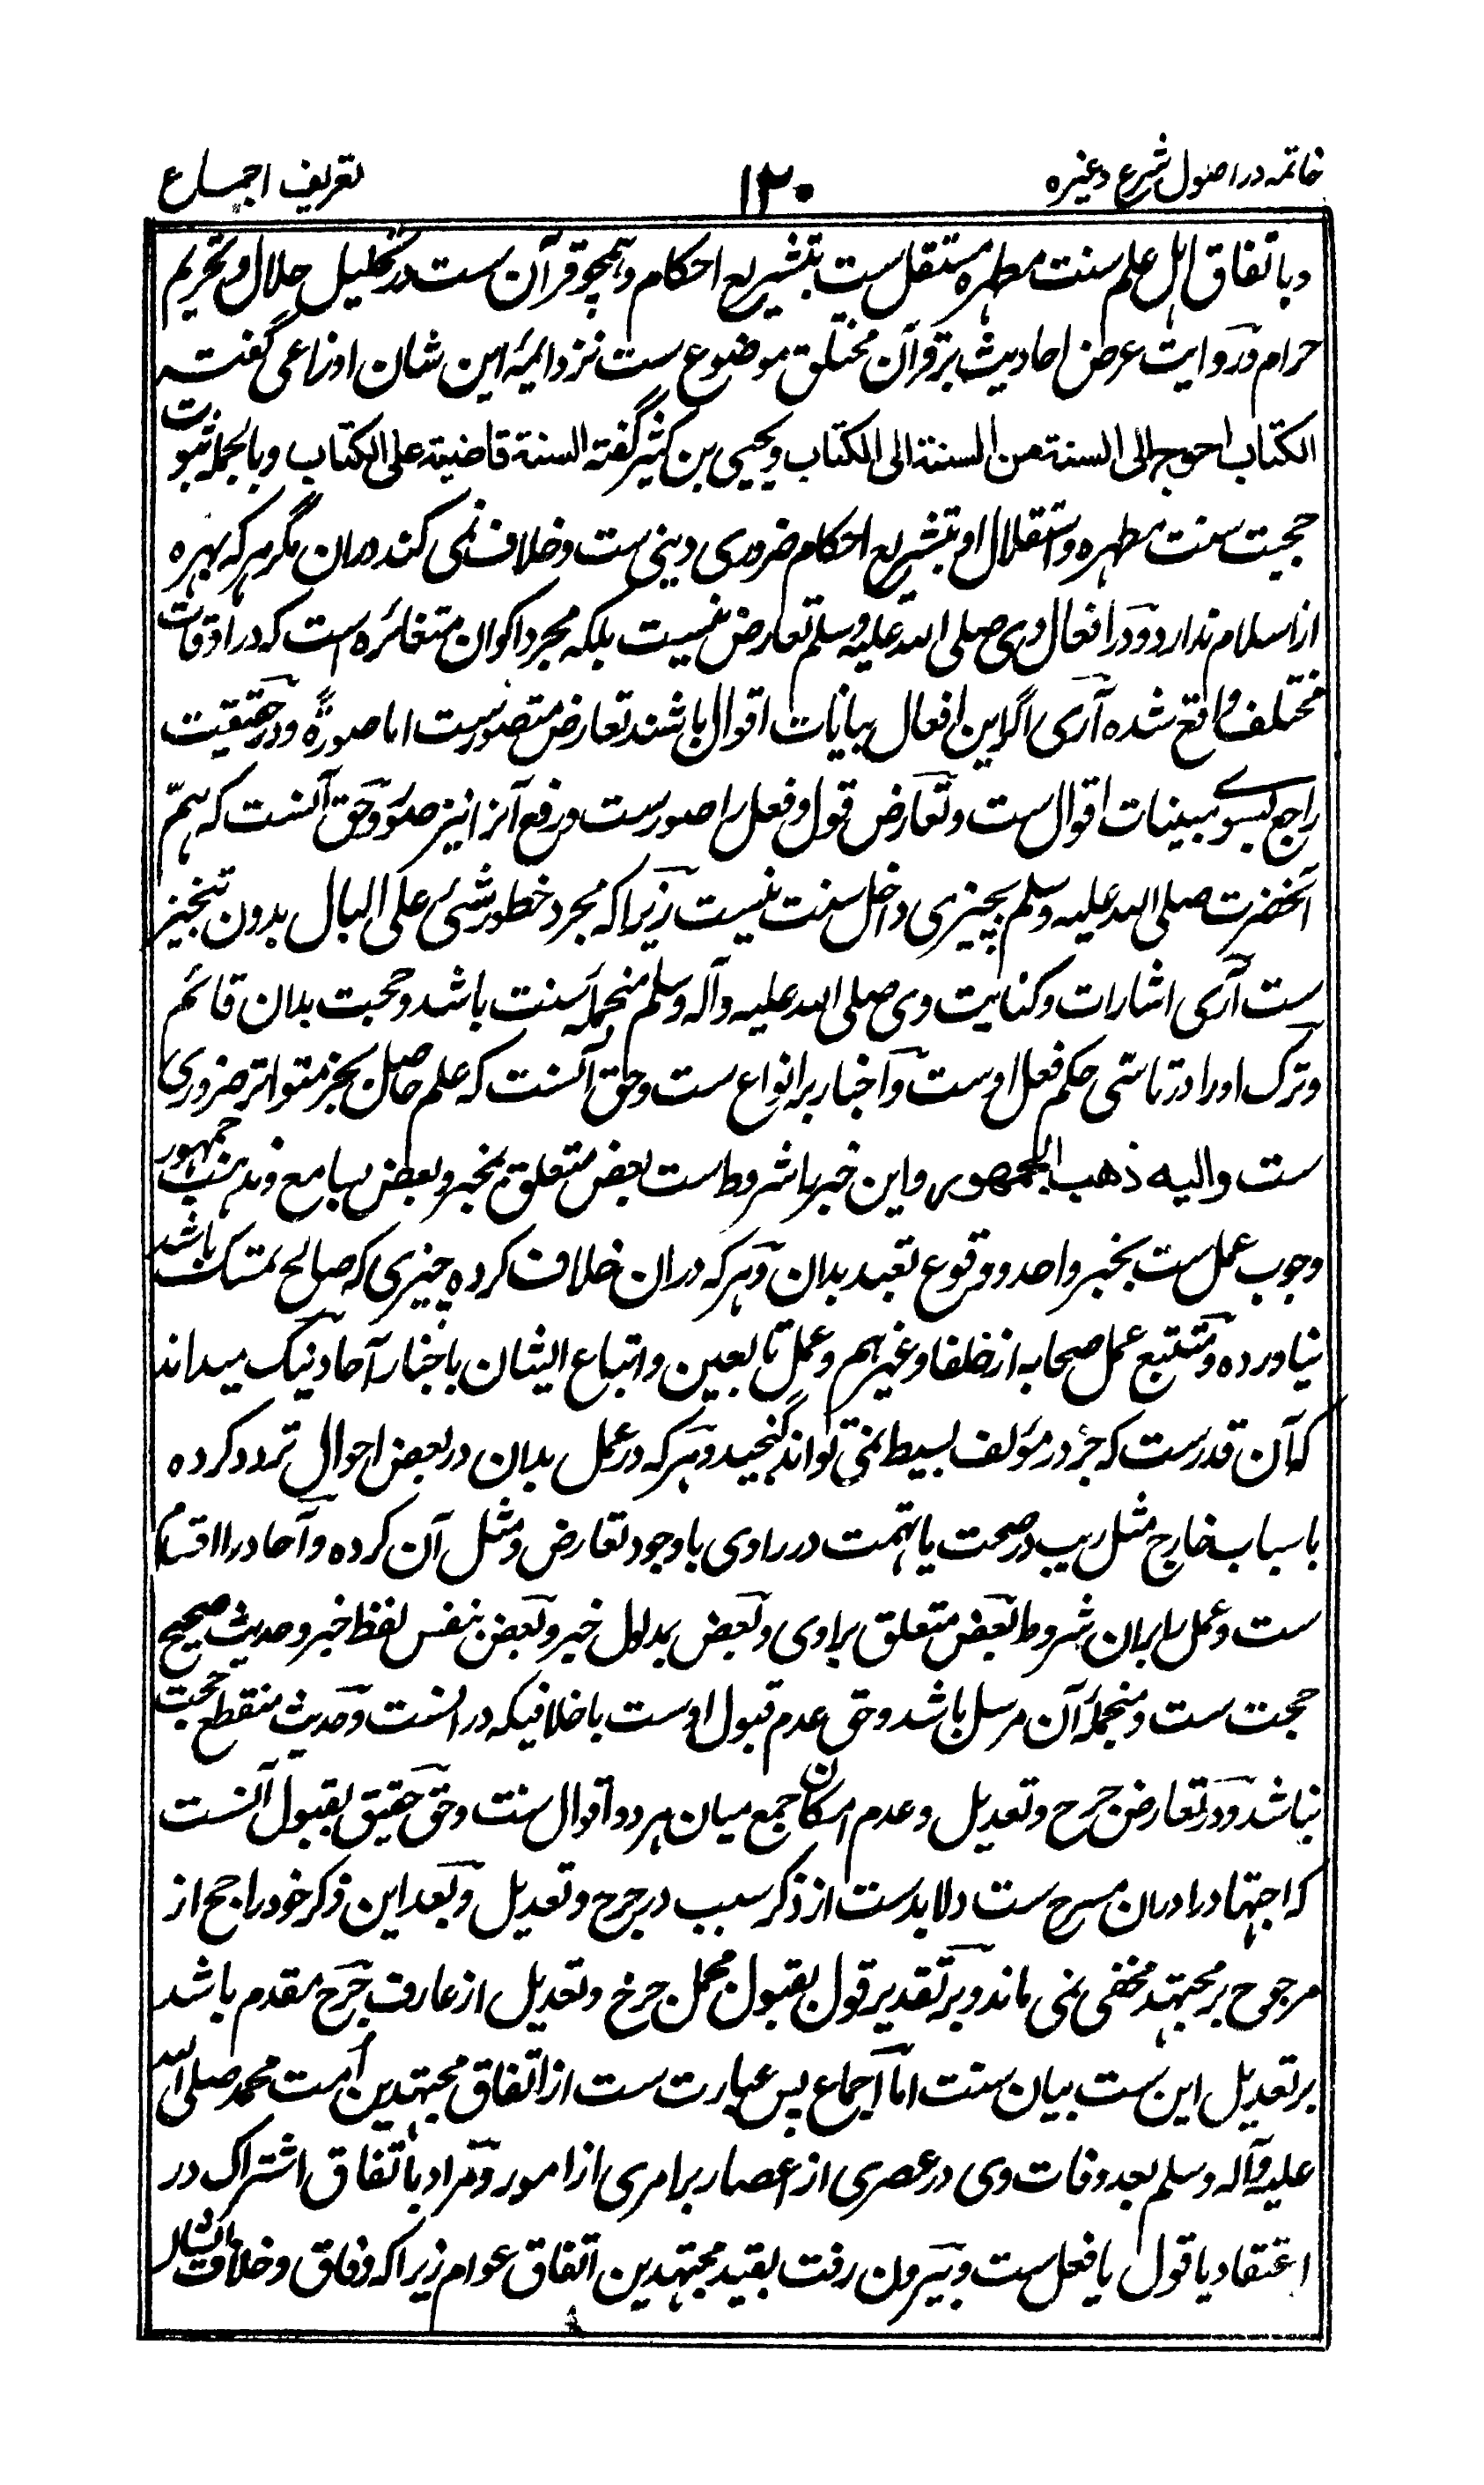 خاتمه در اصول شرع وغیره ۱۲۰ تعریف اجماع
وباتفاق اہل علم سنت مطہره مستقل ست بتشریع احکام وہمچو قرآن ست در تحلیل حلال وتحریم
حرام وروایت عرض احادیث بر قرآن مختلق موضوع ست نزد ائمۂ این شان اوزاعی گفته
الکتاب احوج الی السنة من السنة الی الکتاب ویحیی بن کثیر گفته السنة قاضیة علی الکتاب وبالجمله ثبوت
حجیت سنت مطہره واستقلال او بتشریع احکام ضروری دینی ست وخلاف نمی کند دران مگر ہر که بہره
از اسلام ندارد ودر افعال وی صلی الله علیه وسلم تعارض نیست بلکه مجرد اکوان متغائره است که در اوقات
مختلف واقع شده آری اگر این افعال بیانات اقوال باشند تعارض متصورست اما صورةً ودر حقیقت
راجع بسوے مبینات اقوال ست وتعارض قول وفعل را صورست ورفع آنرا نیز صور وحق آنست که ہمّ
آنحضرت صلی الله علیه وسلم بچیزی داخل سنت نیست زیراکه مجرد خطور شئ علی البال بدون تنجیز
ست آری اشارات وکنایت وی صلی الله علیه وآله وسلم منجملۂ سنت باشد وحجت بدان قائم
وترک او را در تاسّی حکم فعل اوست واخبار بر انواع ست وحق آنست که علم حاصل بخبر متواتر ضروری
ست والیه ذهب الجمهور واین خبر با شروط ست بعض متعلق بمخبر وبعض بسامع ومذہب جمہور
وجوب عمل ست بخبر واحد ووقوع تعبد بدان وہر که دران خلاف کرده چیزی که صالح تمسک باشد
نیاورده ومتتبع عمل صحابه از خلفا وغیرہم وعمل تابعین واتباع ایشان باخبار آحاد نیک میداند
که آن قدرست که جز در مؤلف بسیط نمی تواند گنجید وہر که در عمل بدان در بعض احوال تردد کرده
باسباب خارج مثل ریب در صحت یا تہمت در راوی با وجود تعارض ومثل آن کرده وآحاد را اقسام
ست وعمل را بران شروط بعض متعلق براوی وبعض بمدلول خبر وبعض بنفس لفظ خبر وحدیث صحیح
حجت ست ومنجملۂ آن مرسل باشد وحق عدم قبول اوست با خلافیکه درانست وحدیث منقطع حجت
نباشد ودر تعارض جرح وتعدیل وعدم امکان جمع میان ہر دو اقوال ست وحق حقیق بقبول آنست
که اجتہاد را دران مسرح ست ولابدست از ذکر سبب در جرح وتعدیل وبعد این ذکر خود راجح از
مرجوح بر مجتہد مخفی نمی ماند وبر تقدیر قول بقبول مجمل جرح وتعدیل از عارف جرح مقدم باشد
بر تعدیل این ست بیان سنت اما اجماع پس عبارت ست از اتفاق مجتہدین امت محمد صلی الله
علیه وآله وسلم بعد وفات وی در عصری از اعصار بر امری از امور ومراد باتفاق اشتراک در
اعتقاد یا قول یا فعل ست وبیرون رفت بقید مجتہدین اتفاق عوام زیراکه وفاق وخلاف ایشان